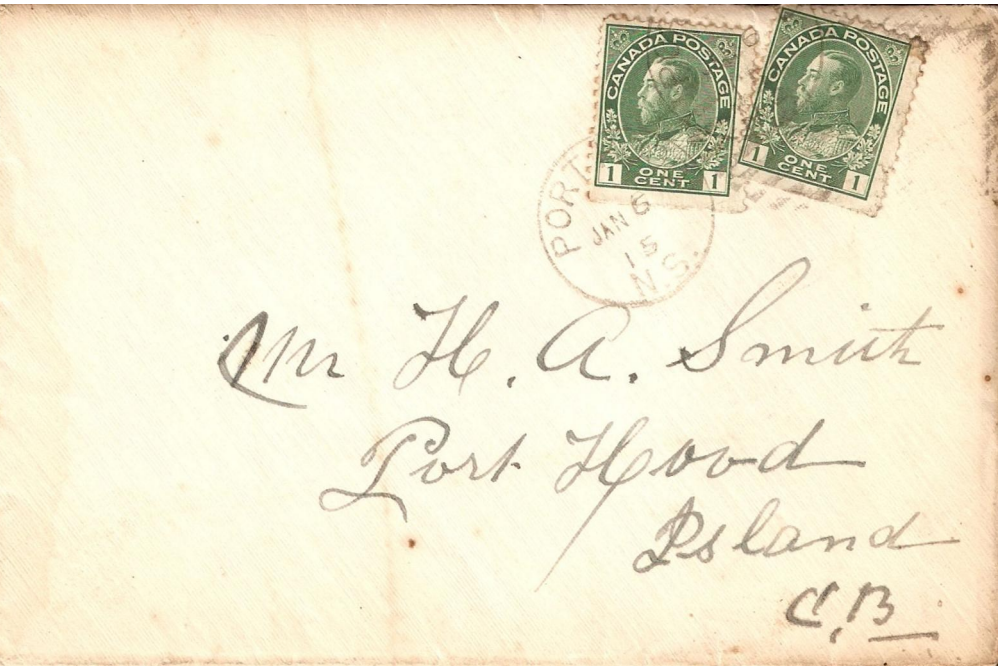 CANADA POSTAGE
1 ONE CENT 1
CANADA POSTAGE
1 ONE CENT 1
PORT
JAN 6
15
N.S.
Mr H. A. Smith
Port Hood
Island
C.B